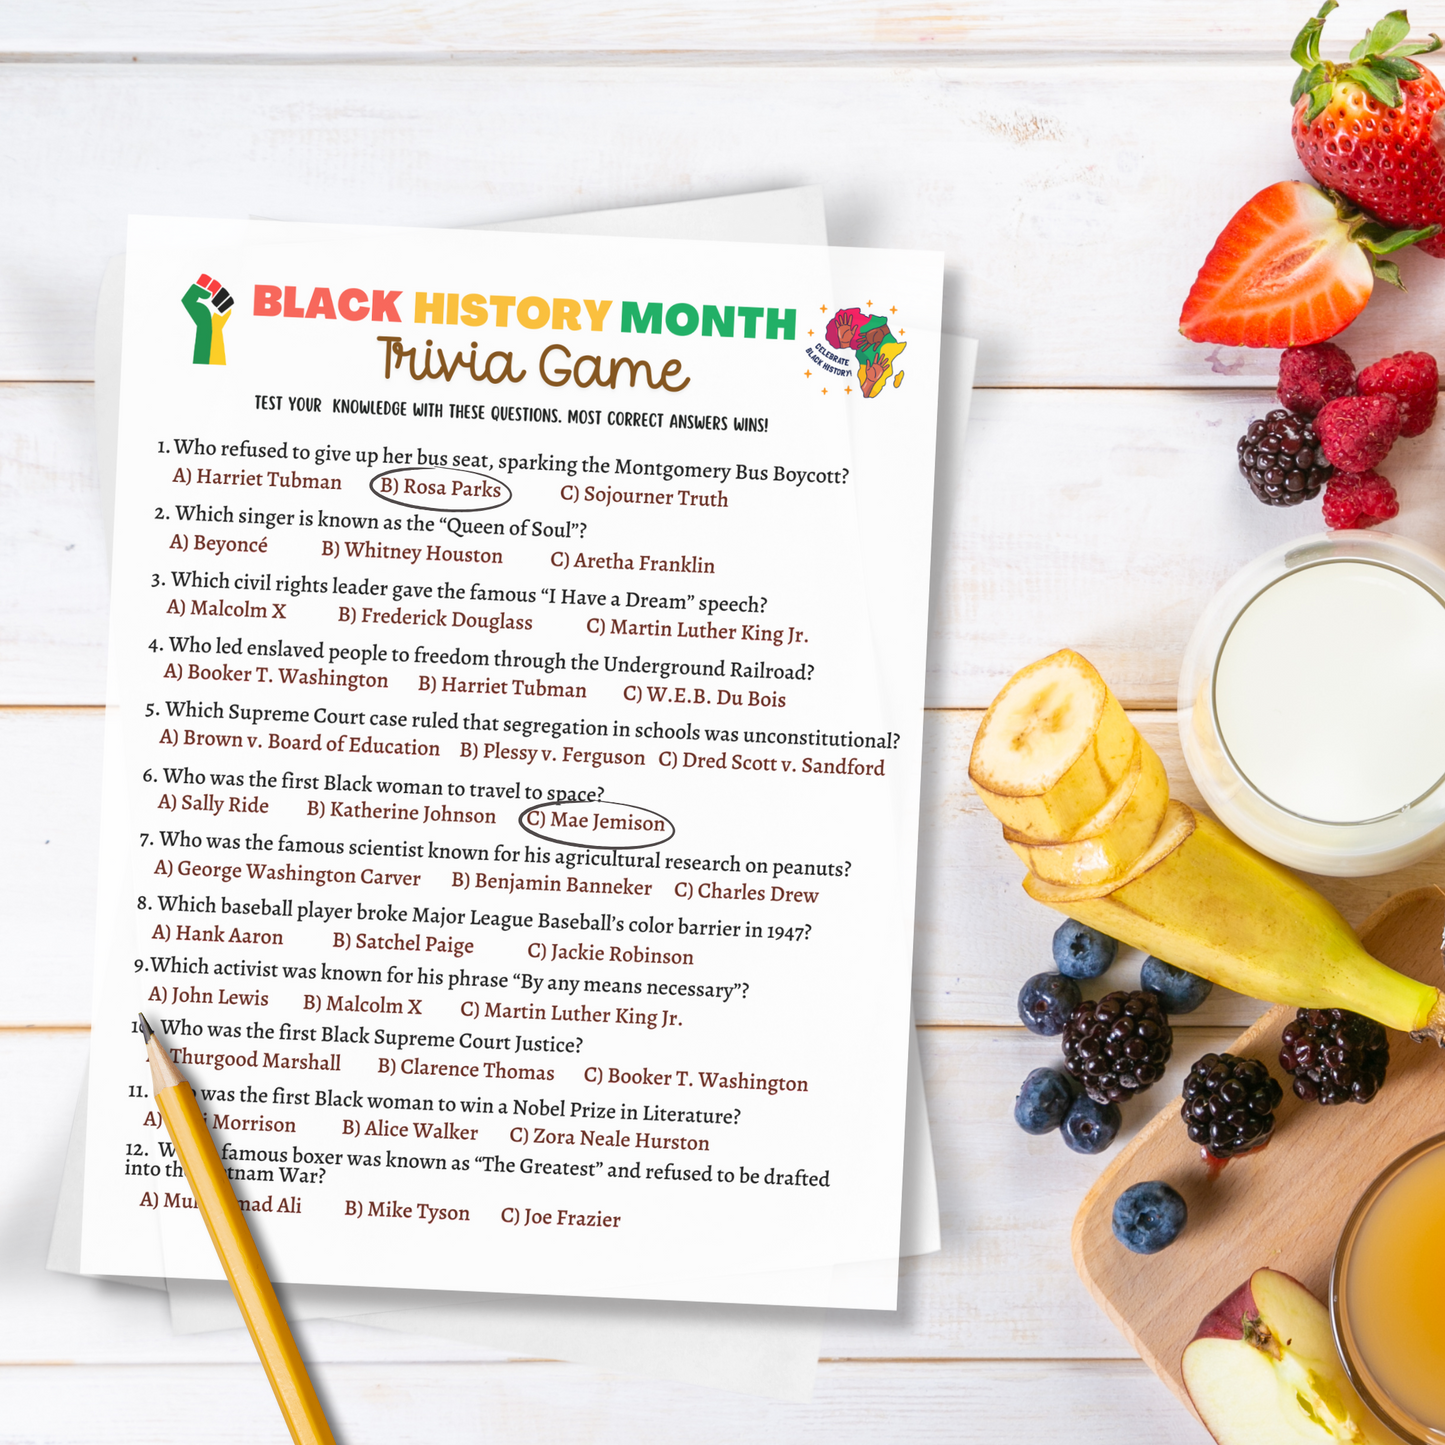 BLACK HISTORY MONTH
Trivia Game
CELEBRATE
BLACK HISTORY!
TEST YOUR KNOWLEDGE WITH THESE QUESTIONS. MOST CORRECT ANSWERS WINS!
1. Who refused to give up her bus seat, sparking the Montgomery Bus Boycott?
A) Harriet Tubman B) Rosa Parks C) Sojourner Truth
2. Which singer is known as the “Queen of Soul”?
A) Beyoncé B) Whitney Houston C) Aretha Franklin
3. Which civil rights leader gave the famous “I Have a Dream” speech?
A) Malcolm X B) Frederick Douglass C) Martin Luther King Jr.
4. Who led enslaved people to freedom through the Underground Railroad?
A) Booker T. Washington B) Harriet Tubman C) W.E.B. Du Bois
5. Which Supreme Court case ruled that segregation in schools was unconstitutional?
A) Brown v. Board of Education B) Plessy v. Ferguson C) Dred Scott v. Sandford
6. Who was the first Black woman to travel to space?
A) Sally Ride B) Katherine Johnson C) Mae Jemison
7. Who was the famous scientist known for his agricultural research on peanuts?
A) George Washington Carver B) Benjamin Banneker C) Charles Drew
8. Which baseball player broke Major League Baseball’s color barrier in 1947?
A) Hank Aaron B) Satchel Paige C) Jackie Robinson
9.Which activist was known for his phrase “By any means necessary”?
A) John Lewis B) Malcolm X C) Martin Luther King Jr.
Who was the first Black Supreme Court Justice?
Thurgood Marshall B) Clarence Thomas C) Booker T. Washington
11. was the first Black woman to win a Nobel Prize in Literature?
A) Morrison B) Alice Walker C) Zora Neale Hurston
12. famous boxer was known as “The Greatest” and refused to be drafted
into War?
A) Ali B) Mike Tyson C) Joe Frazier